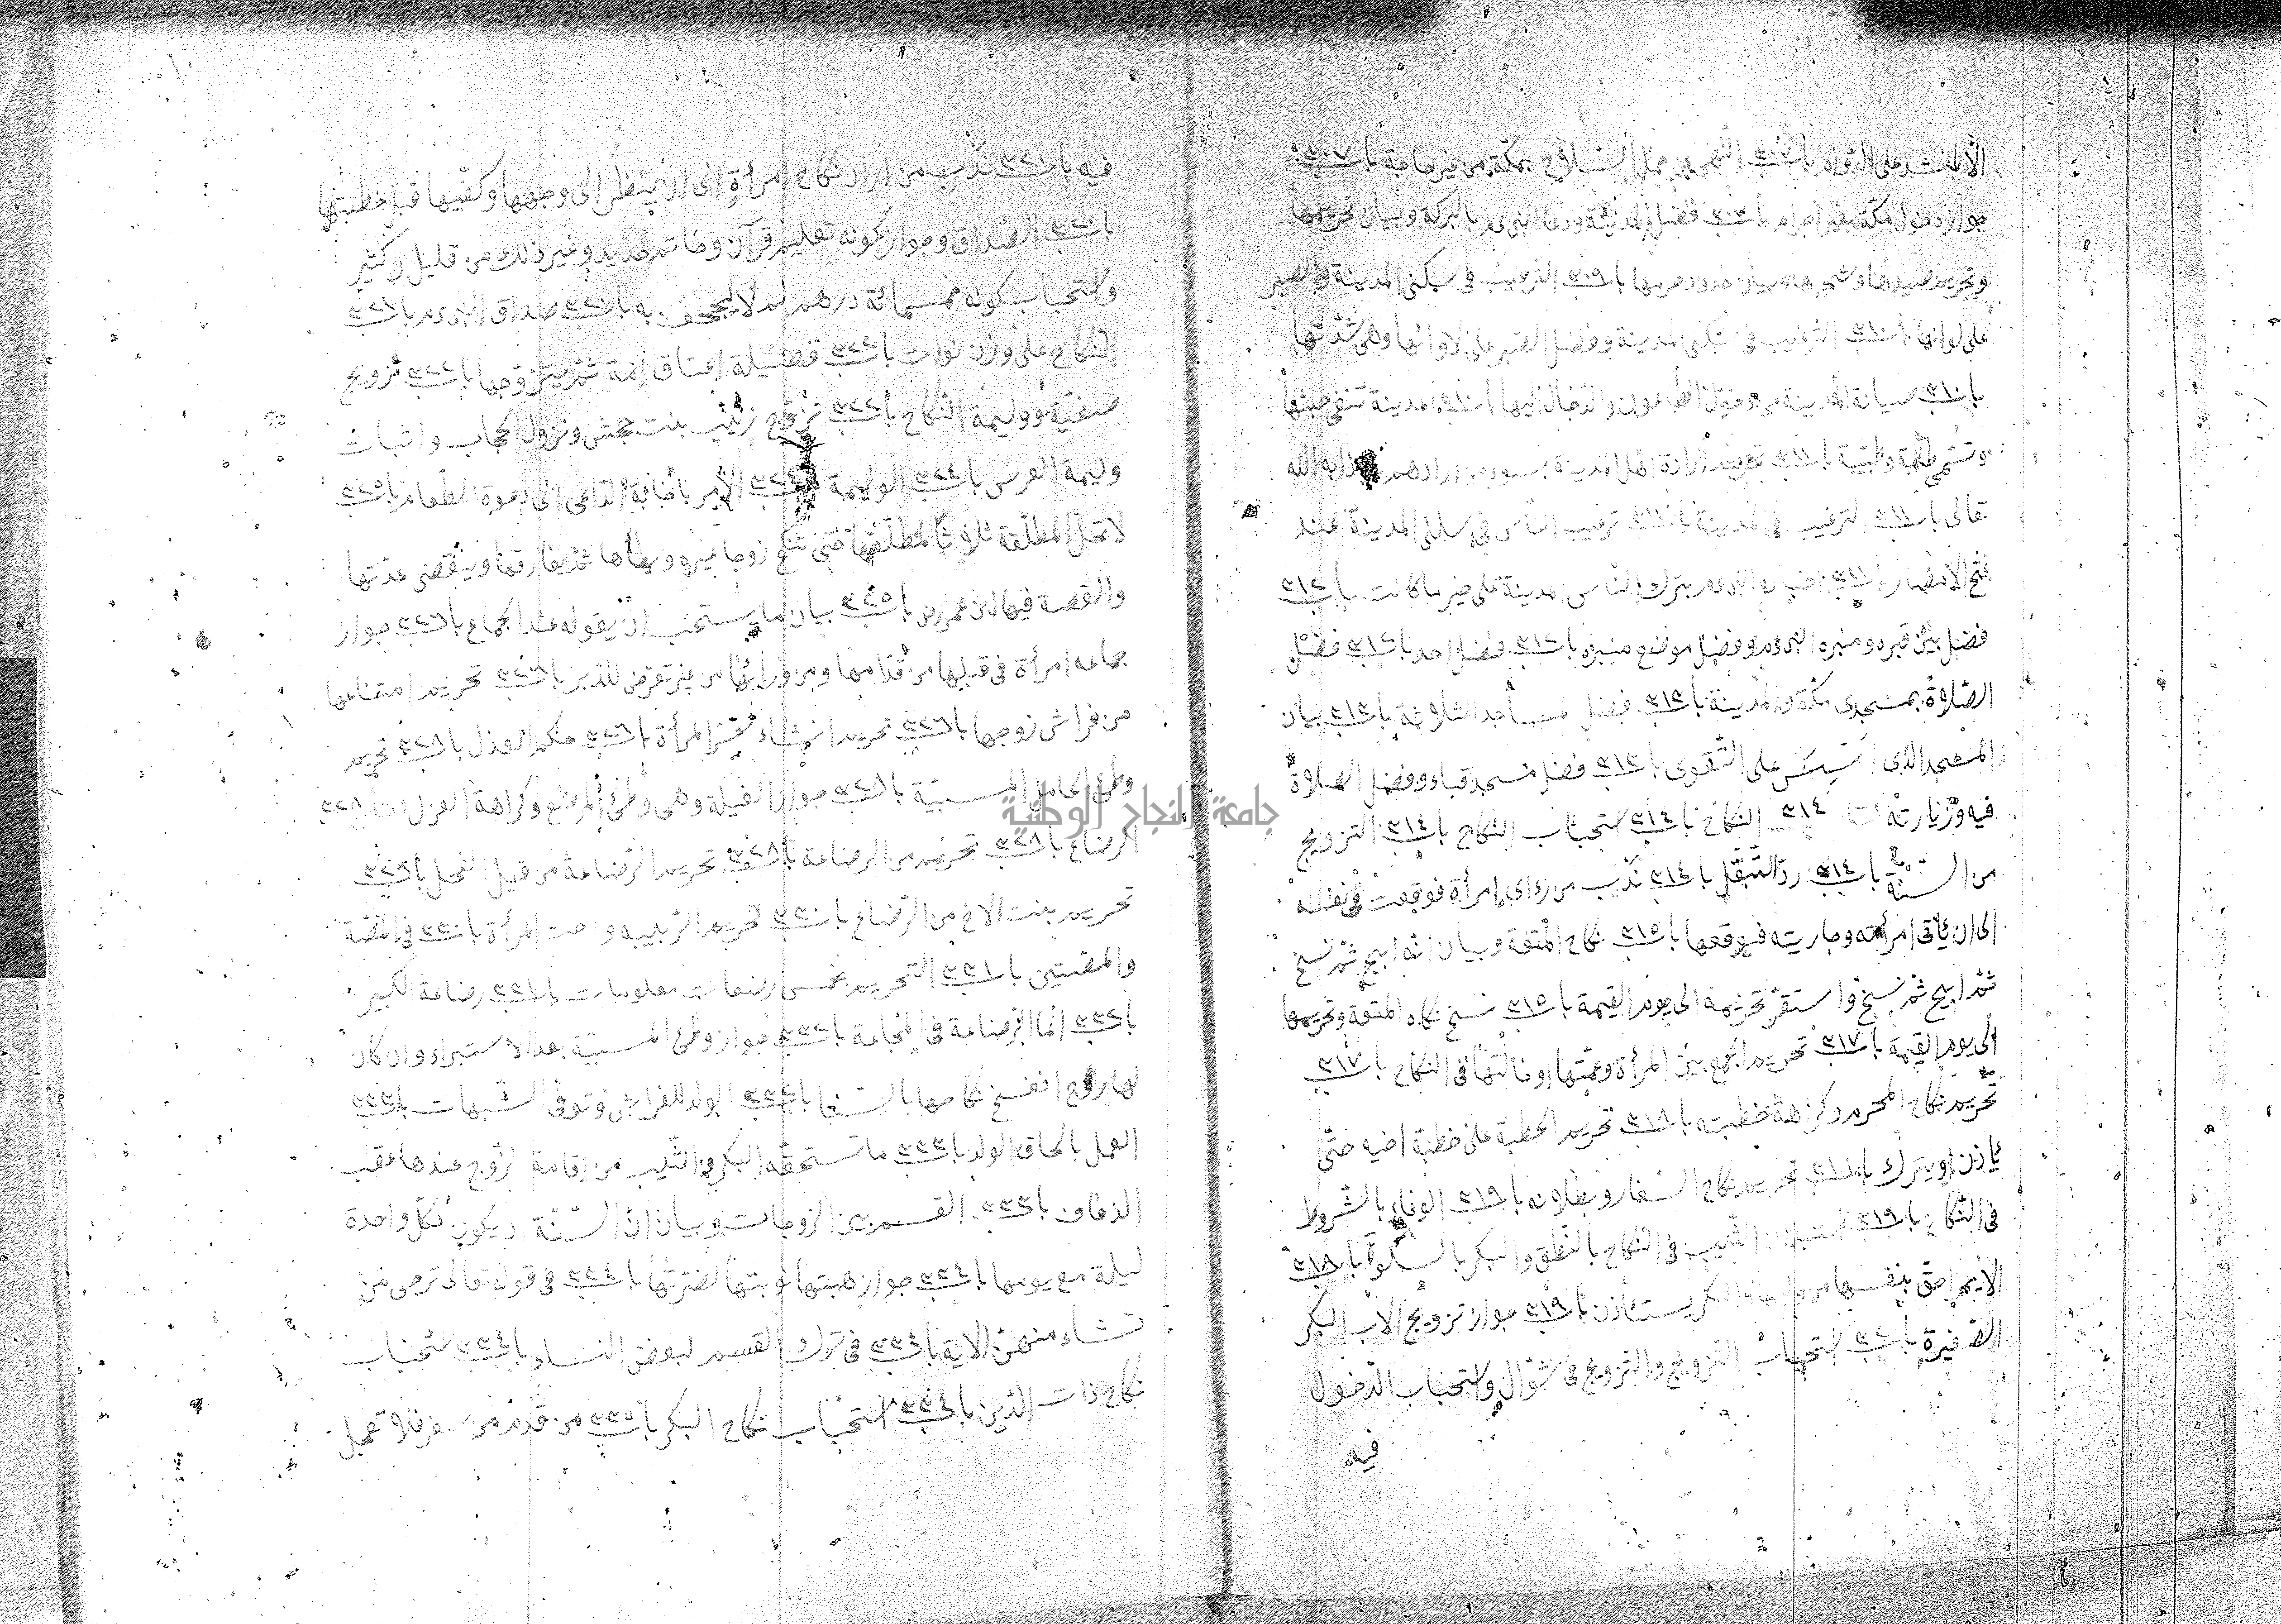 الا لمنشد على الدوام باب ٣٠٧ النهى عن حمل السلاح بمكة من غير حاجة باب ٣٠٧
جواز دخول مكة بغير احرام باب فضل المدينة ودعا النبى عم بالبركة وبيان تحريمها
وتحريم صيدها وشجرها وبيان حدود حرمها باب ٣٠٩ الترغيب فى سكنى المدينة والصبر
على لوائها باب ٣١٠ الترغيب فى سكنى المدينة وفضل الصبر على لاوائها وهى شدتها
باب ٣١٠ صيانة المدينة من دخول الطاعون والدجال اليها باب ٣١٠ المدينة تنفى خبثها
وتسمى طابة وطيبة باب ٣١١ تحريم ارادة اهل المدينة بسوء من ارادهم اذابه الله
تعالى باب ٣١١ الترغيب فى المدينة باب ٣١١ ترغيب الناس فى سكنى المدينة عند
فتح الامصار باب ٣١١ اخبار النبى عم بترك الناس المدينة على خير ما كانت باب ٣١٢
فضل بين قبره ومنبره النبى عم وفضل موضع منبره باب ٣١٢ فضل احد باب ٣١٢ فضل
الصلاة بمسجدى مكة والمدينة باب ٣١٣ فضل المساجد الثلاثة باب ٣١٣ بيان
المسجد الذى اسس على التقوى باب ٣١٣ فضل مسجد قباء وفضل الصلاة
فيه وزيارته ٣١٤ النكاح باب ٣١٤ استحباب النكاح باب ٣١٤ التزويج
من السنة باب ٣١٤ رد التبتل باب ٣١٤ ندب من رءاى امرأة فوقعت فى نفسه
الى ان ياتى امرأته وجاريته فيوقعها باب ٣١٥ نكاح المتعة وبيان انه ابيح ثم نسخ
ثم ابيح ثم نسخ واستقر تحريمه الى يوم القيمة باب ٣١٥ نسخ نكاح المتعة وتحريمها
الى يوم القيمة باب ٣١٧ تحريم الجمع بين المرأة وعمتها او خالتها فى النكاح باب ٣١٧
تحريم نكاح المحرم وكراهة خطبته باب ٣١٨ تحريم الخطبة على خطبة اخيه حتى
ياذن او يترك باب ٣١٨ تحريم نكاح الشغار وبطلانه باب ٣١٩ الوفاء بالشروط
فى النكاح باب ٣١٩ استيذان الثيب فى النكاح بالنطق والبكر بالسكوت باب ٣١٨
الايم احق بنفسها من وليها والبكر يستئاذن باب ٣١٩ جواز تزويج الاب البكر
الصغيرة باب استحباب التزويج والتزوج فى شوال واستحباب الدخول
فيه
فيه باب ٣٢٠ ندب من اراد نكاح امرأة الى ان ينظر الى وجهها وكفيها قبل خطبتها
باب ٣٢٠ الصداق وجواز كونه تعليم قرآن وخاتم حديد وغير ذلك من قليل وكثير
واستحباب كونه خمسمائة درهم لم لا يجحف به باب ٣٢٠ صداق النبى عم باب ٣٢١
النكاح على وزن نوات باب ٣٢٢ فضيلة اعتاق امة ثم يتزوجها باب ٣٢٢ تزويج
صفية ووليمة النكاح باب ٣٢٢ تزوج زينب بنت جحش ونزول الحجاب واثبات
وليمة العرس باب ٣٢٤ الوليمة باب ٣٢٤ الامر باجابة الداعى الى دعوة الطعام باب ٣٢٥
لا تحل المطلقة ثلاثا لمطلقها حتى تنكح زوجا غيره ويطأها ثم يفارقها وينقضى عدتها
والقصة فيها ابن عمر رض باب ٣٢٥ بيان ما يستحب ان يقوله عند الجماع باب ٣٢٦ جواز
جماعه امرأة فى قبلها من قدامها ومن ورائها من غير تعرض للدبر باب ٣٢٦ تحريم امتناعها
من فراش زوجها باب ٣٢٦ تحريم افشاء سر المرأة باب ٣٢٦ حكم العزل باب ٣٢٨ تحريم
وطئ الحامل المسبية باب ٣٢٨ جواز الغيلة وهى وطئ المرضع وكراهة العزل باب ٣٢٨
الرضاع باب ٣٢٨ تحريم من الرضاعة باب ٣٢٨ تحريم الرضاعة من قبل الفحل باب ٣٢٩
تحريم بنت الاخ من الرضاع باب ٣٣٠ تحريم الربيبه واخت المرأة باب ٣٣٠ فى المصة
والمصتين باب ٣٣١ التحريم بخمس رضعات معلومات باب ٣٣١ رضاعة الكبير
باب ٣٣٢ انما الرضاعة فى المجاعة باب ٣٣٢ جواز وطئ المسبية بعد الاستبراء وان كان
لها زوج انفسخ نكاحها بالسبا باب ٣٣٢ الولد للفراش وتوقى الشبهات باب ٣٣٣
العمل بالحاق الولد باب ٣٣٣ ما تستحقه البكر والثيب من اقامة الزوج عندها عقب
الزفاف باب ٣٣٣ القسم بين الزوجات وبيان ان السنة ان يكون لكل واحدة
ليلة مع يومها باب ٣٣٤ جواز هبتها نوبتها لضرتها باب ٣٣٤ فى قوله تعالى ترجى من
تشاء منهن الاية باب ٣٣٤ فى ترك القسم لبعض النساء باب ٣٣٤ استحباب
نكاح ذات الدين باب ٣٣٤ استحباب نكاح البكر باب ٣٣٥ من قدم من سفر فلا تعجل
جامعة النجاح الوطنية